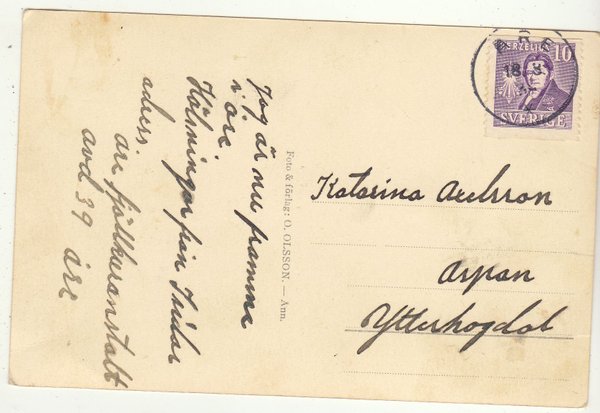 Jag är nu framme
i åre.
Hälsningar från Tuidar
adress.
åre fjällkuranstalt
avd 39 åre
Foto & förlag: O. OLSSON. — Ann.
BERZELIUS 10
SVERIGE
ÅRE
18 3
Katarina Axelsson
Arpan
Ytterhogdal